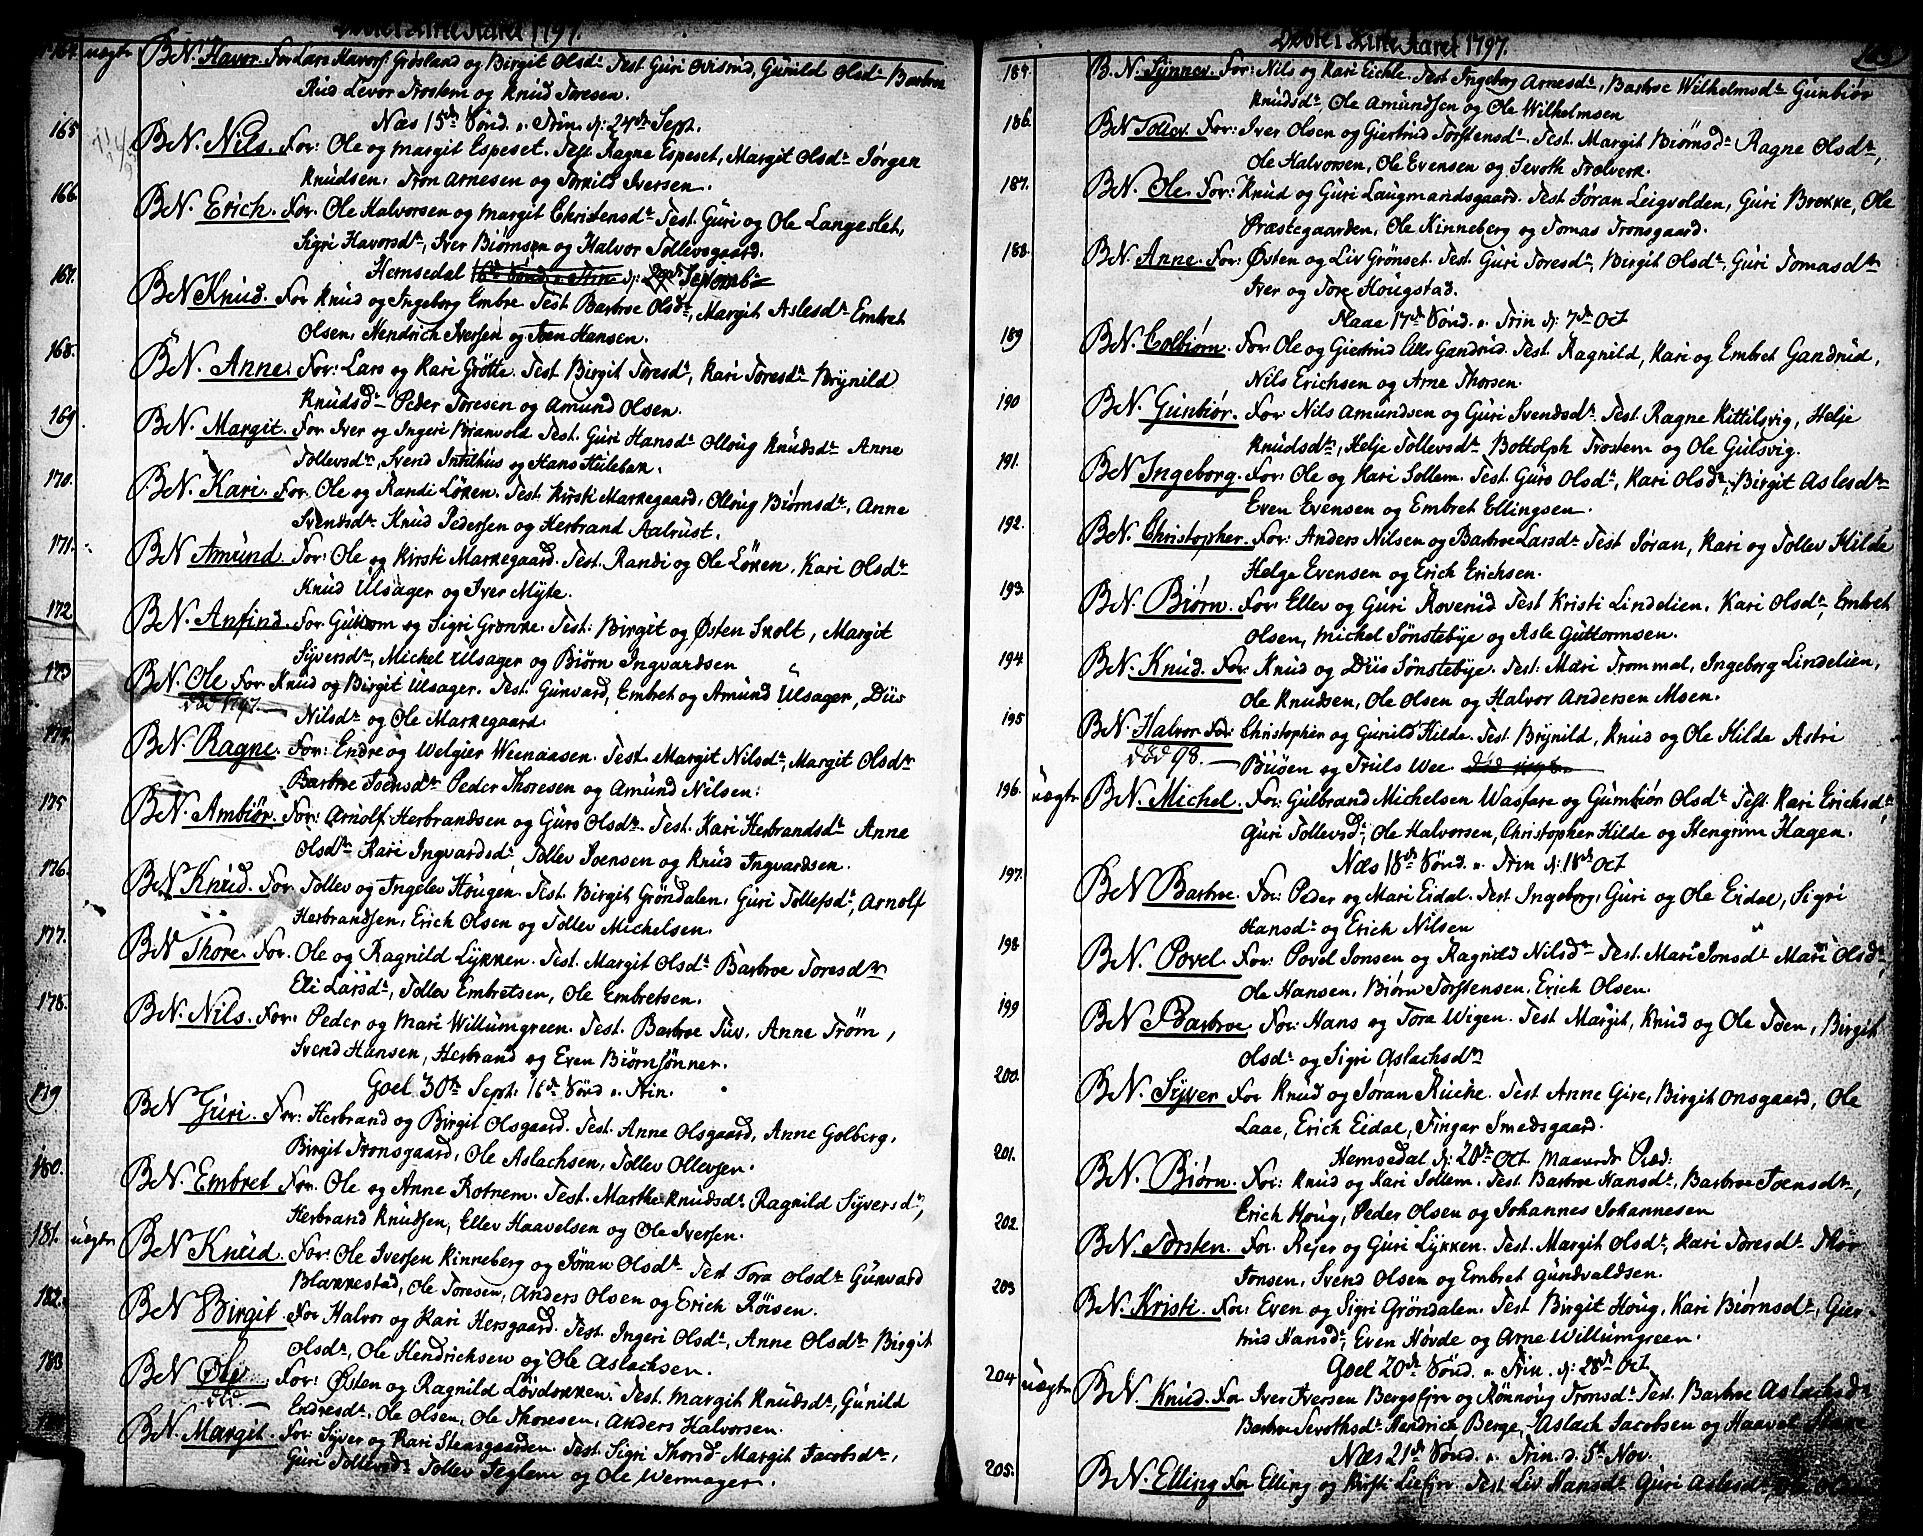 Døbte i Kirke Aaret 1797.
164. uægte BN. Havor. For Lars Havorsen Grösland og Birgit Olsdr Test Guri Qvisrud, Gunild Olsdr Barbroe
Rud Levor Trostem og Knud Toresen.
Næs 15de Sønd. p. Trin. d: 24de Sept.
165 BN. Nils. For: Ole og Margit Espeset. Test. Ragne Espeset, Margit Olsdr Jørgen
Knudsen, Tron Arnesen og Torkild Iversen.
166. BN. Erich. For. Ole Halvorsen og Margit Christensdr Test. Guri og Ole Langeslet,
Sigri Havorsdr, Iver Biørnsen og Halvor Tollevsgaard.
Hemsedal 16de Sønd. p. Trin d: 29de Septembr
167. BN Knud. For Knud og Ingeborg Embre Test Barbroe Olsdr, Margit Aslesdr Embret
Olsen, Hendrich Iversen og Iven Hansen.
168. BN. Anne. For: Lars og Kari Grötte. Test Birgit Toresdr, Kari Toresdr Brynild
Knudsdr Peder Toresen og Amund Olsen.
169. BN. Margit. For Iver og Ingeri Brianvold Test. Guri Hansdr Olloug Knudsdr Anne
Tollevsdr, Svend Intelhus og Hans Hulebak.
170. BN. Kari. For. Ole og Randi Löken. Test. Kirsti Markegaard, Olloug Biörnsdr, Anne
Svendsdr Knud Pedersen og Herbrand Aalrust.
171. BN Amund. For: Ole og Kirsti Markegaard. Test. Randi og Ole Löken, Kari Olsdr
Knud Ulsager og Iver Myte.
172 BN. Anfind. For Guttorm og Sigri Grønke. Test: Birgit og Østen Skolt, Margit
Syversdr, Michel Ulsager og Biørn Ingvardsen
173 BN. Ole For Knud og Birgit Ulsager. Test. Gunvard, Embret og Amund Ulsager, Diis
död 1797. Nilsdr og Ole Markegaard.
174. BN. Ragne. For: Endre og Welgier Weenaasen. Test. Margit Nilsdr, Margit Olsdr
Barbroe Toensdr Peder Thoresen og Amund Nilsen:
175 BN. Ambiør. For: Arnolf Herbrandsen og Guro Olsdr. Test. Kari Herbrandsdr Anne
Olsdr Kari Ingvardsdr Tollev Toensen og Knud Ingvardsen.
176. BN Knud. For Tollev og Ingelev Hougen. Test. Birgit Gröndalen, Guri Tollefsdr, Arnolf
Herbrandsen, Erich Olsen og Tollev Michelsen.
177. BN Thore. For. Ole og Ragnild Lykken. Test. Margit Olsdr Barbroe Toresdr
Eli Larsdr, Tollev Embretsen, Ole Embretsen.
178. BN. Nils. For: Peder og Mari Willumgreen. Test. Barbroe Tuv, Anne Tröm,
Svend Hansen, Herbrand og Even Biørnsönner.
Goel 30te Sept. 16de Sönd p. Trin.
179 BN Guri. For: Herbrand og Birgit Olsgaard. Test. Anne Olsgaard, Anne Golberg,
Birgit Tronsgaard, Ole Aslachsen, Tollev Ollevsen.
180. BN. Embret For. Ole og Anne Rotnem. Test. Marthe Knudsdr Ragnild Syversdr,
Herbrand Knudsen, Ellev Haavelsen og Ole Iversen.
181. uægte BN Knud. For: Ole Iversen Kinneberg og Jöran Olsdr Test Tora Olsdr Gunvard
Blakkestad, Ole Toresen, Anders Olsen og Erich Röisen.
182. BN Birgit For Halvor og Kari Hersgaard. Test. Ingeri Olsdr, Anne Olsdr Birgit
Olsdr, Ole Hendrichsen og Ole Aslachsen.
183 BN Ole. For: Østen og Ragnild Lövdokken. Test. Margit Knudsdr, Gunild
död. Endresdr, Ole Olsen, Ole Thoresen, Anders Halvorsen.
184 BN. Margit. For Syver og Kari Steensgaarden. Test. Sigri Thorsdr Margit Jacobsdr,
Guri Tollevsdr Tollev Teglem og Ole Wermager.
Døbte i Kirke Aaret 1797.
185. B.N. Synnev. For: Nils og Kari Eichle. Test Ingeborg Arnesdr, Barbroe Wilhelmsdr Gunbiør
Knudsdr, Ole Amundsen og Ole Wilhelmsen
186. BN Tollev. For: Iver Olsen og Giertrud Torstensdr. Test. Margit Biörnsdr Ragne Olsdr,
Ole Halvorsen, Ole Evensen og Sevoth Trælverk.
187. BN. Ole. For: Knud og Guri Laugmandsgaard. Test Jöran Leigvolden, Guri Brekke, Ole
Præstegaarden, Ole Kinneberg og Tomas Tronsgaard.
188. BN. Anne. For: Østen og Liv Grönset. Test. Guri Toresdr, Birgit Olsdr, Guri Tomasdr
Iver og Tore Hougstad.
Flaae 17de Sönd. p. Trin d: 7de Oct
189 BN. Colbiörn. For Ole og Giertrud Gandrud. Test. Ragnild, Kari og Embret Gandrud,
Nils Erichsen og Arne Thorsen.
190 BN. Gunbiør. For Nils Amundsen og Guri Svendsdr. Test. Ragne Kittilsvig, Helje
Knudsdr, Helje Tollevsdr Bottolph Trostem og Ole Gulsvig.
191. BN Ingeborg. For: Ole og Kari Sollem. Test. Guro Olsdr, Kari Olsdr, Birgit Aslesdr
Even Evensen og Embret Ellingsen.
192. BN. Christopher. For: Anders Nilsen og Barbroe Larsdr Test Jöran, Kari og Tollev Hilde
Helge Evensen og Erich Erichsen.
193. BN. Biørn. For: Ellev og Guri Roverud Test Kristi Lindelien, Kari Olsdr, Embret
Olsen, Michel Sönstebye og Asle Guttormsen.
194 BN. Knud. For: Knud og Diis Sönstebye. Test: Mari Trommal, Ingeborg Lindelien,
Ole Knudsen, Ole Olsen og Halvor Andersen Moen.
195 BN. Halvor For: Christopher og Gunild Hilde. Test. Brynild, Knud og Ole Hilde Astri
död 98. Buöen og Truls Wee.
196. uægte BN. Michel. For: Gulbrand Michelsen Wasfare og Gumbiör Olsdr Test Kari Erichsdr,
Guri Tollevsdr, Ole Halvorsen, Christopher Hilde og Hengrim Hagen.
Næs 18de Sönd. p. Trin d: 18de Oct
197. BN Barbroe. For: Peder og Mari Eidal. Test Ingeborg, Guri og Ole Eidal, Sigri
Hansdr og Erich Nilsen
198. BN. Povel. For: Povel Jonsen og Ragnild Nilsdr Test. Mari Jonsdr Mari Olsdr,
Ole Hansen, Biørn Torstensen, Erich Olsen.
199 BN Barbroe For: Hans og Tora Wigen. Test Margit, Knud og Ole Toen, Birgit
Olsdr og Sigri Aslachsdr
200. BN. Syver For Knud og Jöran Ruche. Test Anne Gire, Birgit Onsgaard, Ole
Laae, Erich Eidal, Fingar Smedsgaard.
Hemsedal d: 20de Oct Maaneds Præd:
201. BN. Biørn. For: Knud og Kari Tollem. Test Barbroe Hansdr, Barbroe Toensdr,
Erich Houg, Peder Olsen og Johannes Johannesen
202. BN. Torsten. For. Rejer og Guri Lykken. Test. Margit Olsdr, Kari Toresdr Thor
Jonsen, Svend Olsen og Embret Gundvaldsen.
203 BN. Kristi. For: Even og Sigri Gröndalen. Test Birgit Houg, Kari Biörnsdr, Gier-
trud Hansdr, Even Hövde og Arne Willumgreen.
Goel 20de Sönd. p. Trin. d: 28de Oct
204 uægte BN. Knud. For Iver Iversen Bergsejre og Rönnoug Tronsdr Test. Barbroe Aslachsdr
Barbroe Sevothsdr Hendrich Berge, Aslach Jacobsen og Haavel
Næs 21de Sönd. p. Trin. d. 5te Nov.
205. BN. Elling For Elling og Kirsti Liefjer. Test Liv Hansdr Guri Aslesdr, Ole